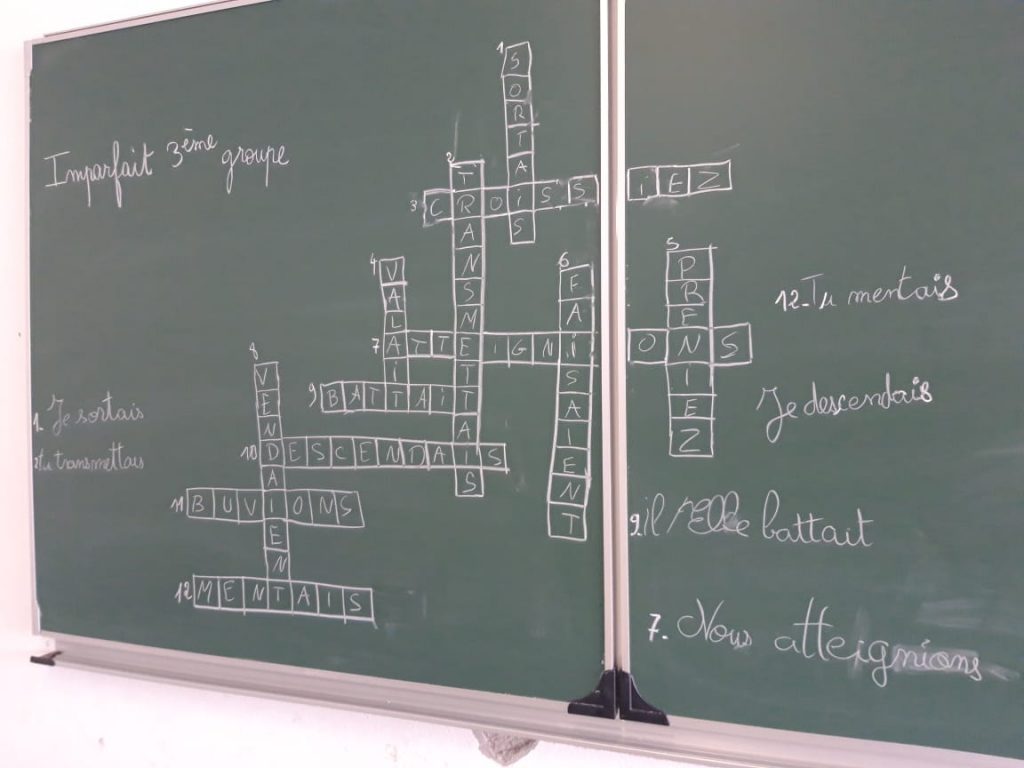 Imparfait 3ème groupe
1 SORTAIS
2 TRANSMETTAIS
3 CROISSIEZ
4 VALAIT
5 PRENIEZ
6 FAISAIENT
7 ATTEIGNIONS
8 VENDAIENT
9 BATTAIT
10 DESCENDAIS
11 BUVIONS
12 MENTAIS
1. Je sortais
2 tu transmettais
12-Tu mentais
Je descendais
9. il / elle battait
7. Nous atteignions